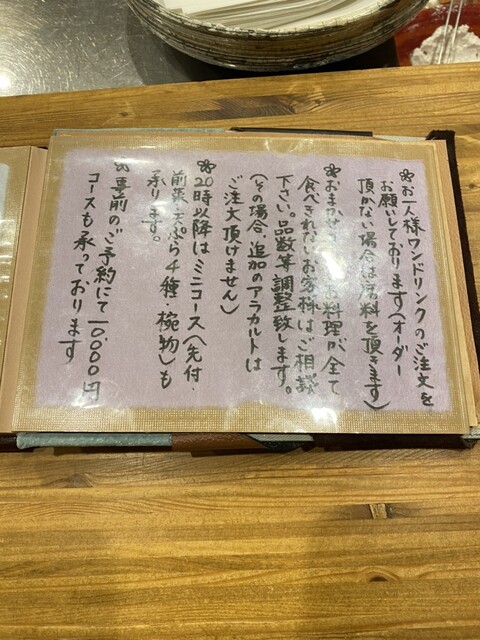 お一人様ワンドリンクのご注文を
お願いしております(オーダー
頂かない場合は席料を頂きます)
おまかせ お料理が、全て
食べきれないお客様はご相談
下さい。品数等調整致します。
(その場合、追加のアラカルトは
ご注文頂けません)
20時以降はミニコース(先付・
前菜・天ぷら4種・椀物)も
承ります。
事前のご予約にて一〇、〇〇〇円
コースも承っております